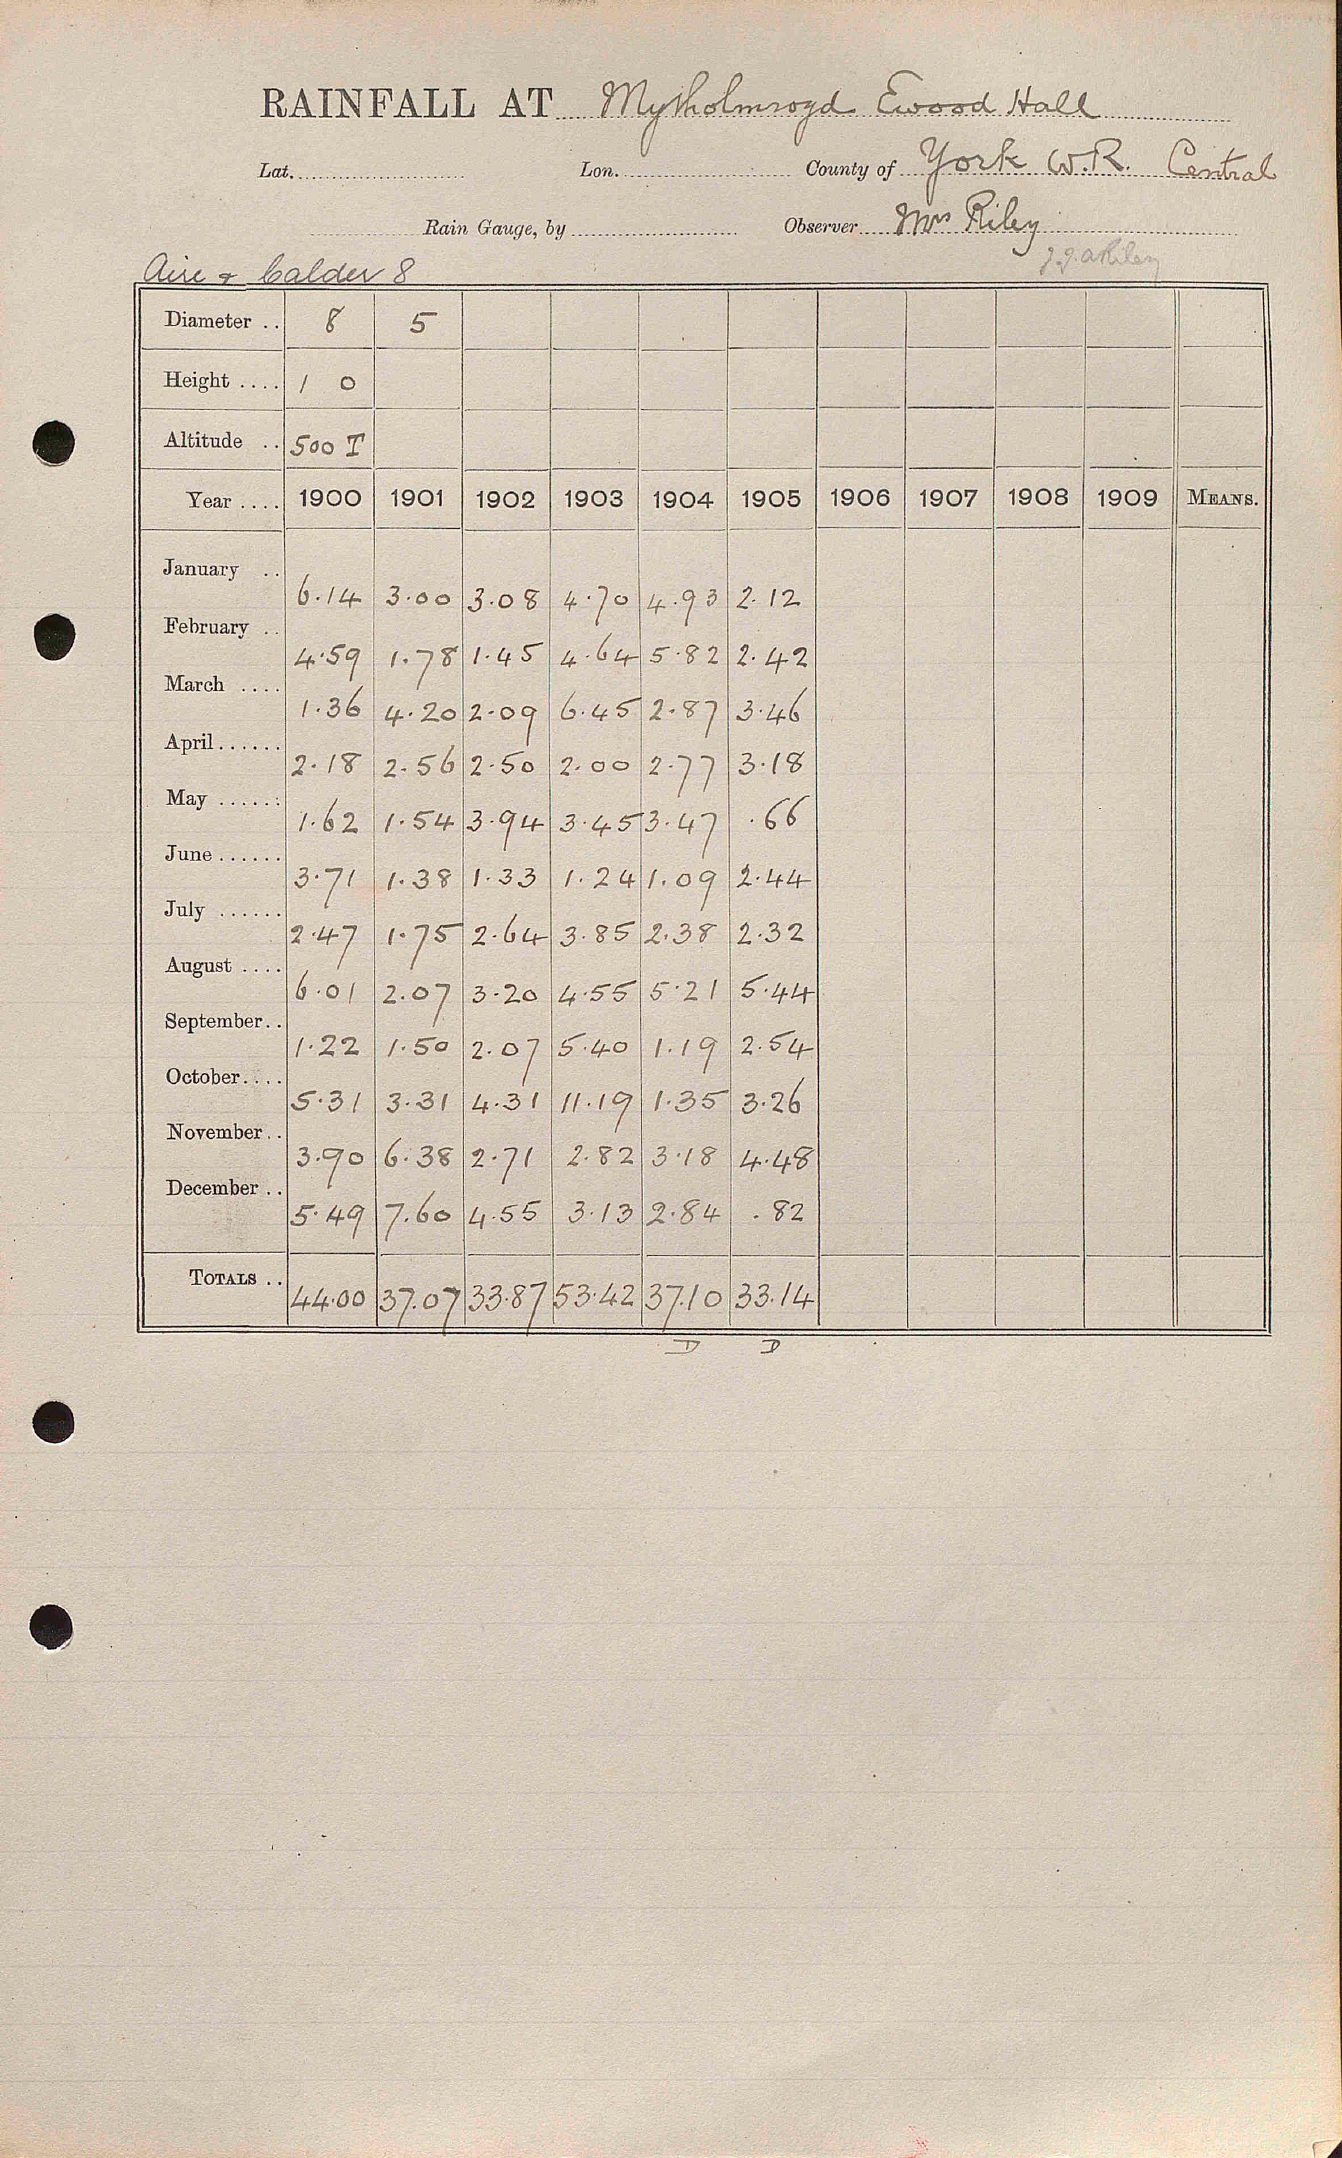 RAINFALL AT Mytholmroyd Ewood Hall
Lat. Lon. County of York W.R. Central
Rain Gauge, by Observer Mrs Riley
Aire & Calder 8
Diameter .. 8 5
Height .... 1 0
Altitude .. 500 T
Year .... 1900 1901 1902 1903 1904 1905 1906 1907 1908 1909 MEANS.
January .. 6.14 3.00 3.08 4.70 4.93 2.12
February .. 4.59 1.78 1.45 4.64 5.82 2.42
March .... 1.36 4.20 2.09 6.45 2.87 3.46
April...... 2.18 2.56 2.50 2.00 2.77 3.18
May ...... 1.62 1.54 3.94 3.45 3.47 .66
June...... 3.71 1.38 1.33 1.24 1.09 2.44
July ...... 2.47 1.75 2.64 3.85 2.38 2.32
August .... 6.01 2.07 3.20 4.55 5.21 5.44
September.. 1.22 1.50 2.07 5.40 1.19 2.54
October.... 5.31 3.31 4.31 11.19 1.35 3.26
November.. 3.90 6.38 2.71 2.82 3.18 4.48
December .. 5.49 7.60 4.55 3.13 2.84 .82
TOTALS .. 44.00 37.07 33.87 53.42 37.10 33.14
D D